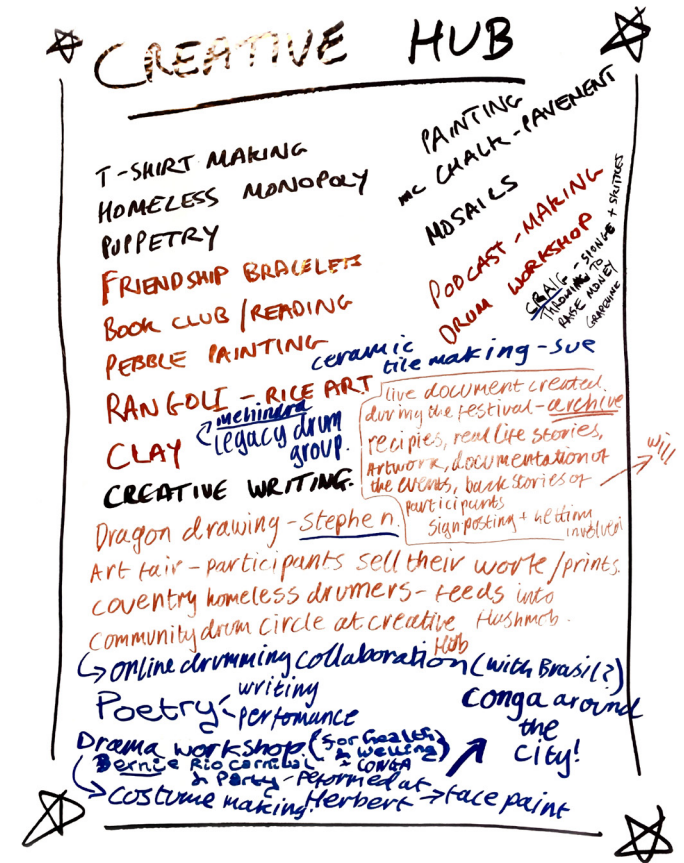 CREATIVE HUB
T-SHIRT MAKING
HOMELESS MONOPOLY
PUPPETRY
FRIENDSHIP BRACELETS
BOOK CLUB / READING
PEBBLE PAINTING
RANGOLI - RICE ART
mehindra
legacy drum
group.
CLAY
CREATIVE WRITING.
PAINTING
CHALK - PAVEMENT
MOSAICS
PODCAST - MAKING
DRUM WORKSHOP
CRAIG - SPONGE + SKITTLES
THROWING TO
RAISE MONEY
GRAPEVINE
ceramic
tile making - sue
live document created
during the festival - archive
recipies, real life stories,
Artwork, documentation of
the events, back stories of
participants
signposting + getting
involved
will
Dragon drawing - Stephen.
Art fair - participants sell their work/prints.
Coventry homeless drumers - feeds into
Community drum circle at creative Hub
flashmob.
online drumming collaboration (with Brasil?)
Poetry
writing
performance
conga around
the
city!
Drama workshop (for health
& wellbing)
Bernie Rio carnival
& Party
= CONGA
- peformed at
Herbert
costume making!
face paint